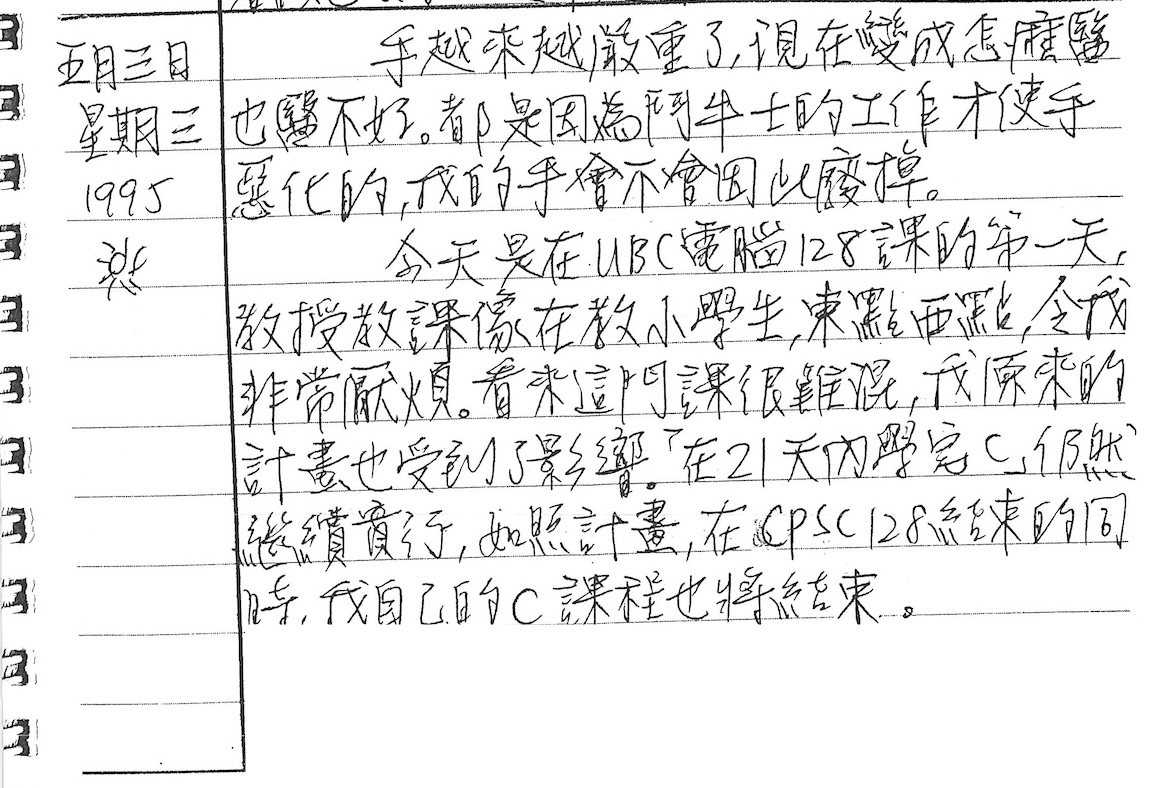 五月三日
星期三
1995
手越來越嚴重了,現在變成怎麼醫
也醫不好。都是因為鬥牛士的工作才使手
惡化的,我的手會不會因此廢掉。
今天是在UBC電腦128課的第一天,
教授教課像在教小學生,東點西點,令我
非常厭煩。看來這門課很難混,我原來的
計畫也受到了影響。「在21天內學完C」仍然
繼續實行,如照計畫,在CPSC128結束的同
時,我自己的C課程也將結束。